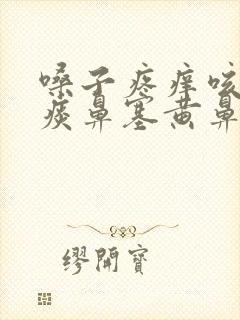 嗓子疼痒咳
痰鼻塞黄鼻
缪開寶